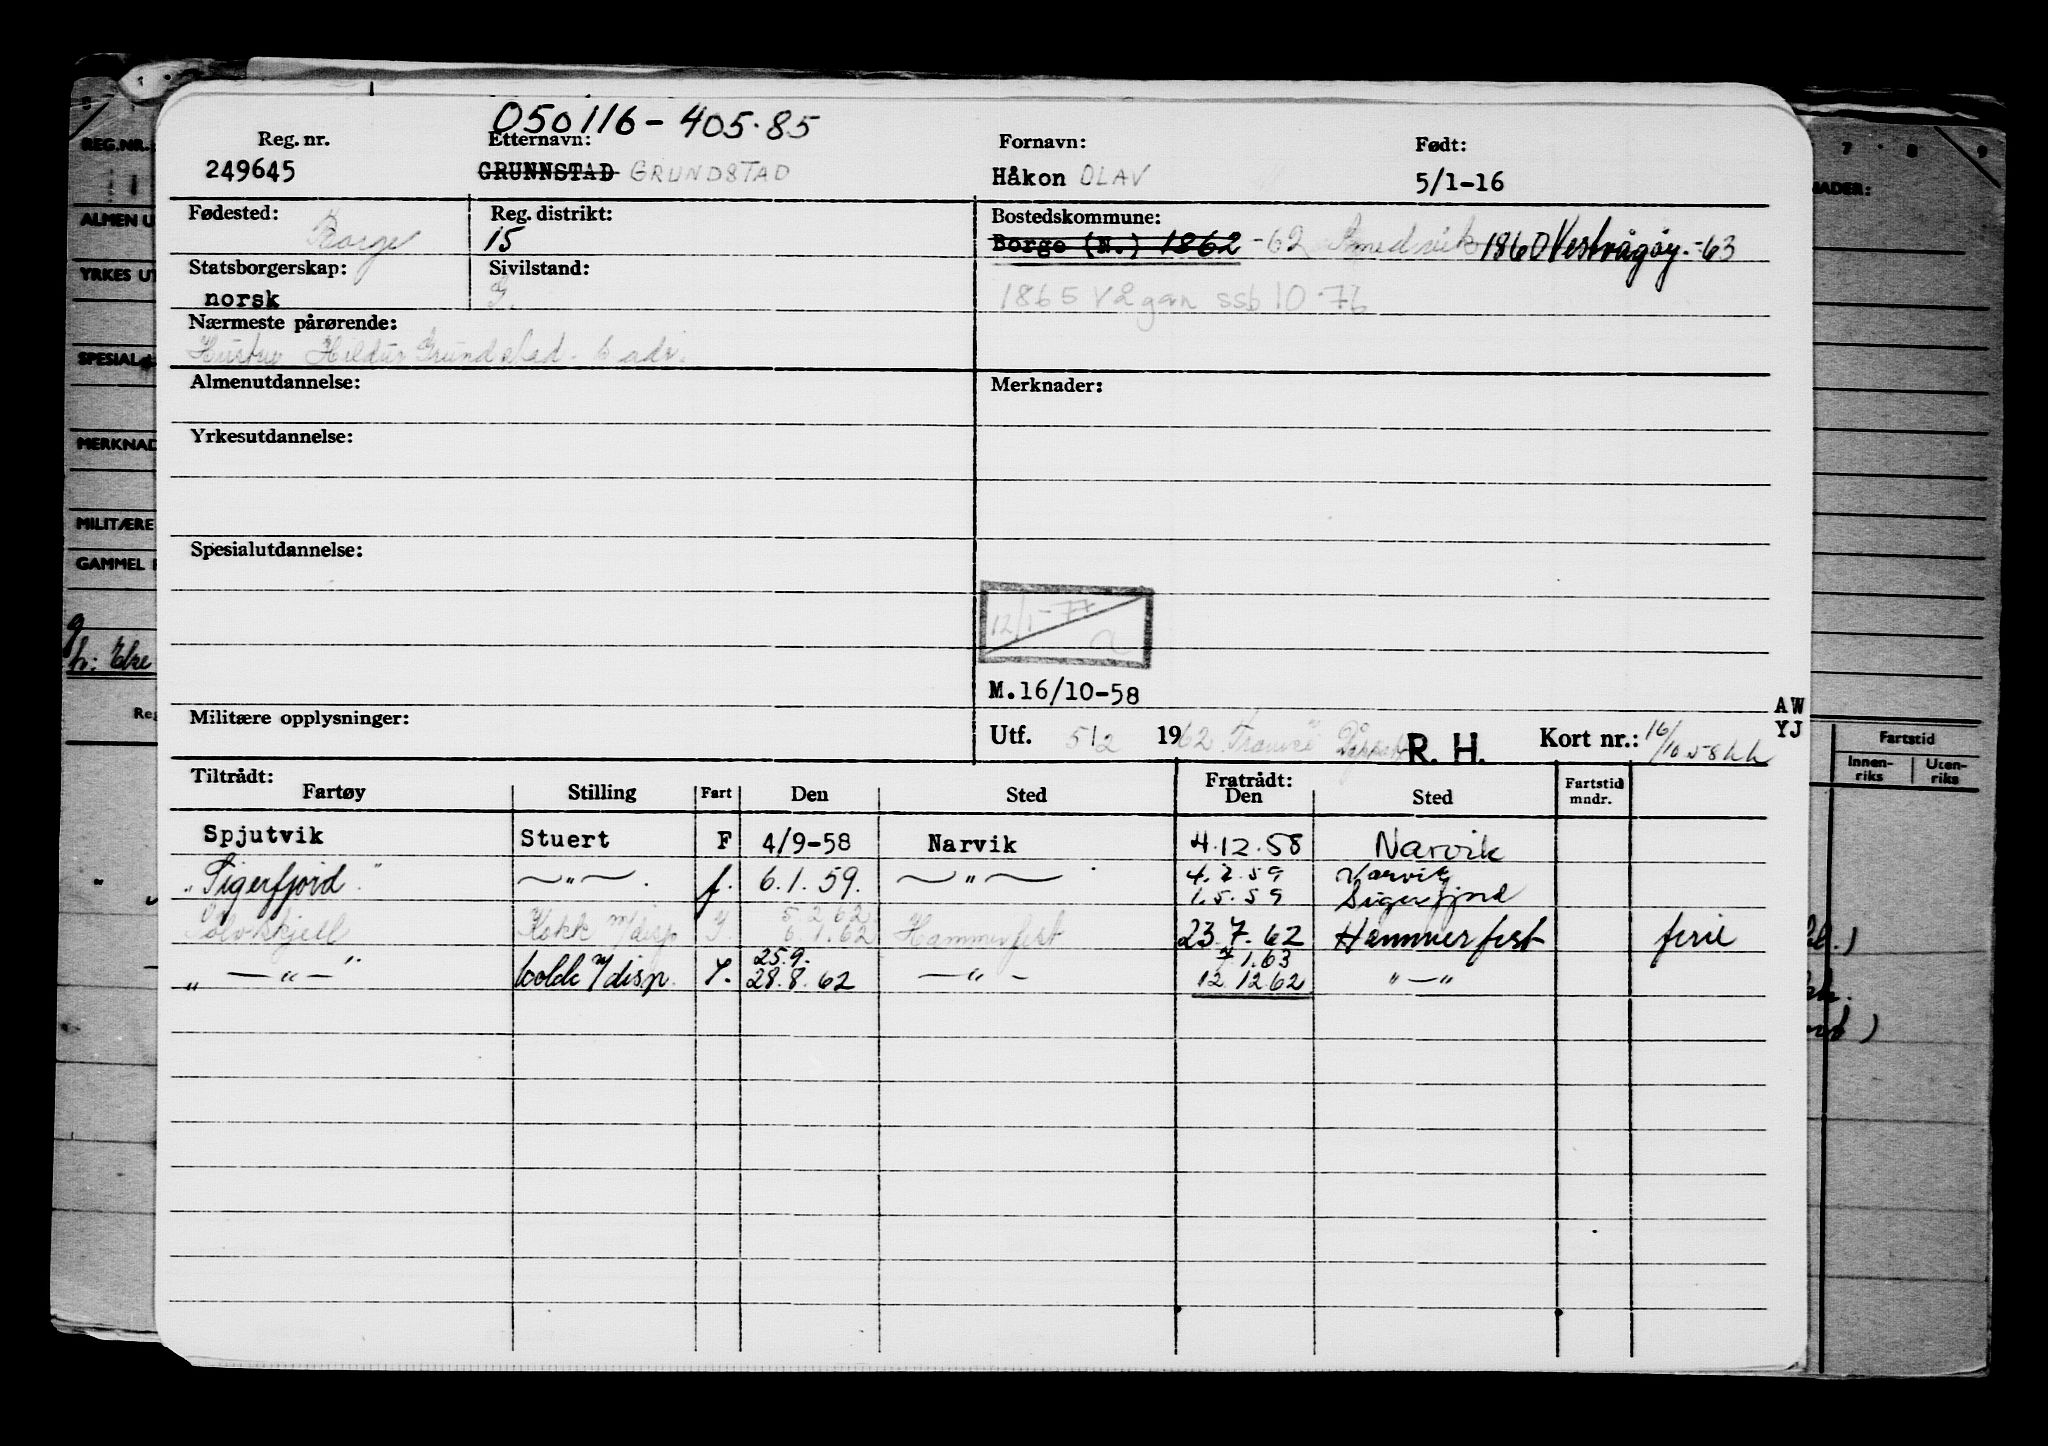 050116-405.85
Reg. nr. Etternavn: Fornavn: Født:
249645 GRUNNSTAD GRUNDSTAD Håkon OLAV 5/1-16
Fødested: Reg. distrikt: Bostedskommune:
Borge 15 Borge (N.) 1862 -62 1860 Vestvågøy -63
Statsborgerskap: Sivilstand:
norsk G. 1865 Vågan ssb 10.76
Nærmeste pårørende:
Hustru Hildur Grundstad - b adr.
Almenutdannelse: Merknader:
Yrkesutdannelse:
Spesialutdannelse:
12/1-77
M.16/10-58
AW
Militære opplysninger: Utf. 5/2 1962 R. H. Kort nr.: 16/10 58 YJ
Tiltrådt: Fratrådt:
Fartøy Stilling Fart Den Sted Den Sted Fartstid mndr.
Spjutvik Stuert F 4/9-58 Narvik 4.12.58 Narvik
"Sigerfjord" —"— f. 6.1.59. —"— 4.2.59 Narvik
1.5.59 Sigerfjord
5.2.62
Kokk m/disp 6.1.62 Hammerfest 23.7.62 Hammerfest ferie
25.9. 7.1.63
" —"— " m/disp. 28.8.62 —"— 12.12.62 "—"
REG.NR.
ALMEN U
YRKES UT
SPESIAL
MERKNAD
MILITÆRE
GAMMEL
Reg
7 8 9
NADER:
Fartstid
Innen-riks Uten-riks